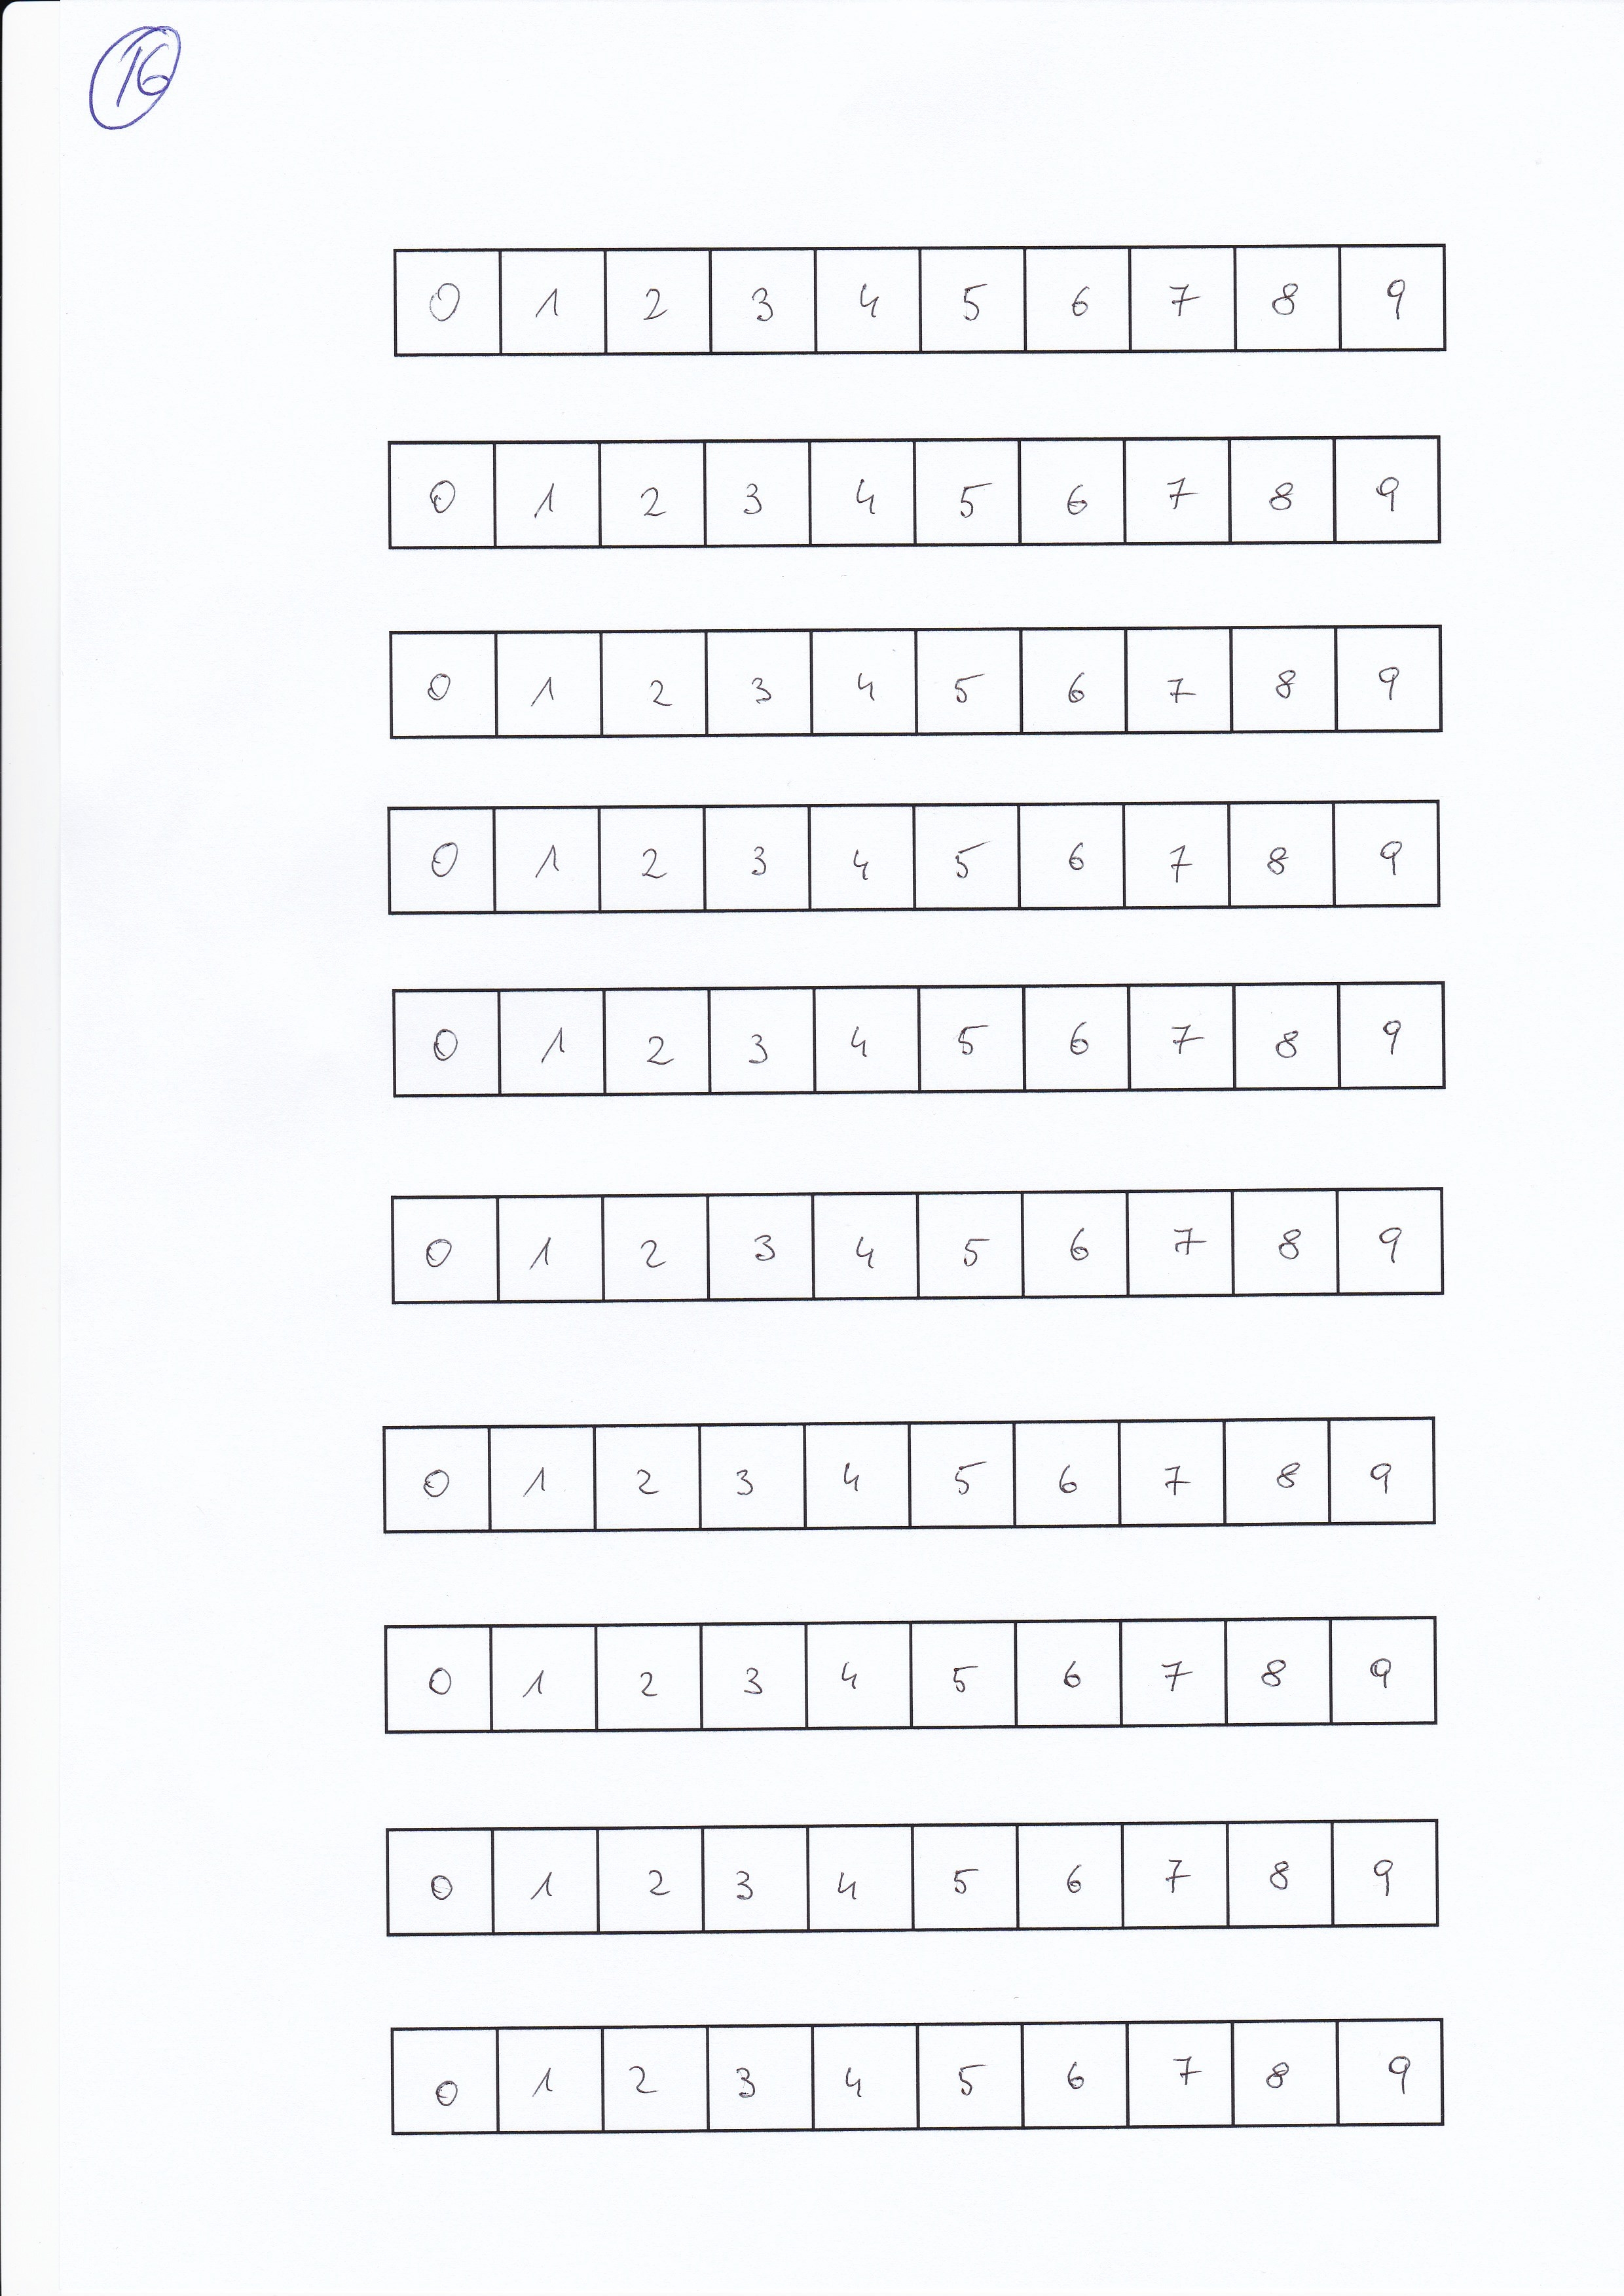 16
0 1 2 3 4 5 6 7 8 9
0 1 2 3 4 5 6 7 8 9
0 1 2 3 4 5 6 7 8 9
0 1 2 3 4 5 6 7 8 9
0 1 2 3 4 5 6 7 8 9
0 1 2 3 4 5 6 7 8 9
0 1 2 3 4 5 6 7 8 9
0 1 2 3 4 5 6 7 8 9
0 1 2 3 4 5 6 7 8 9
0 1 2 3 4 5 6 7 8 9